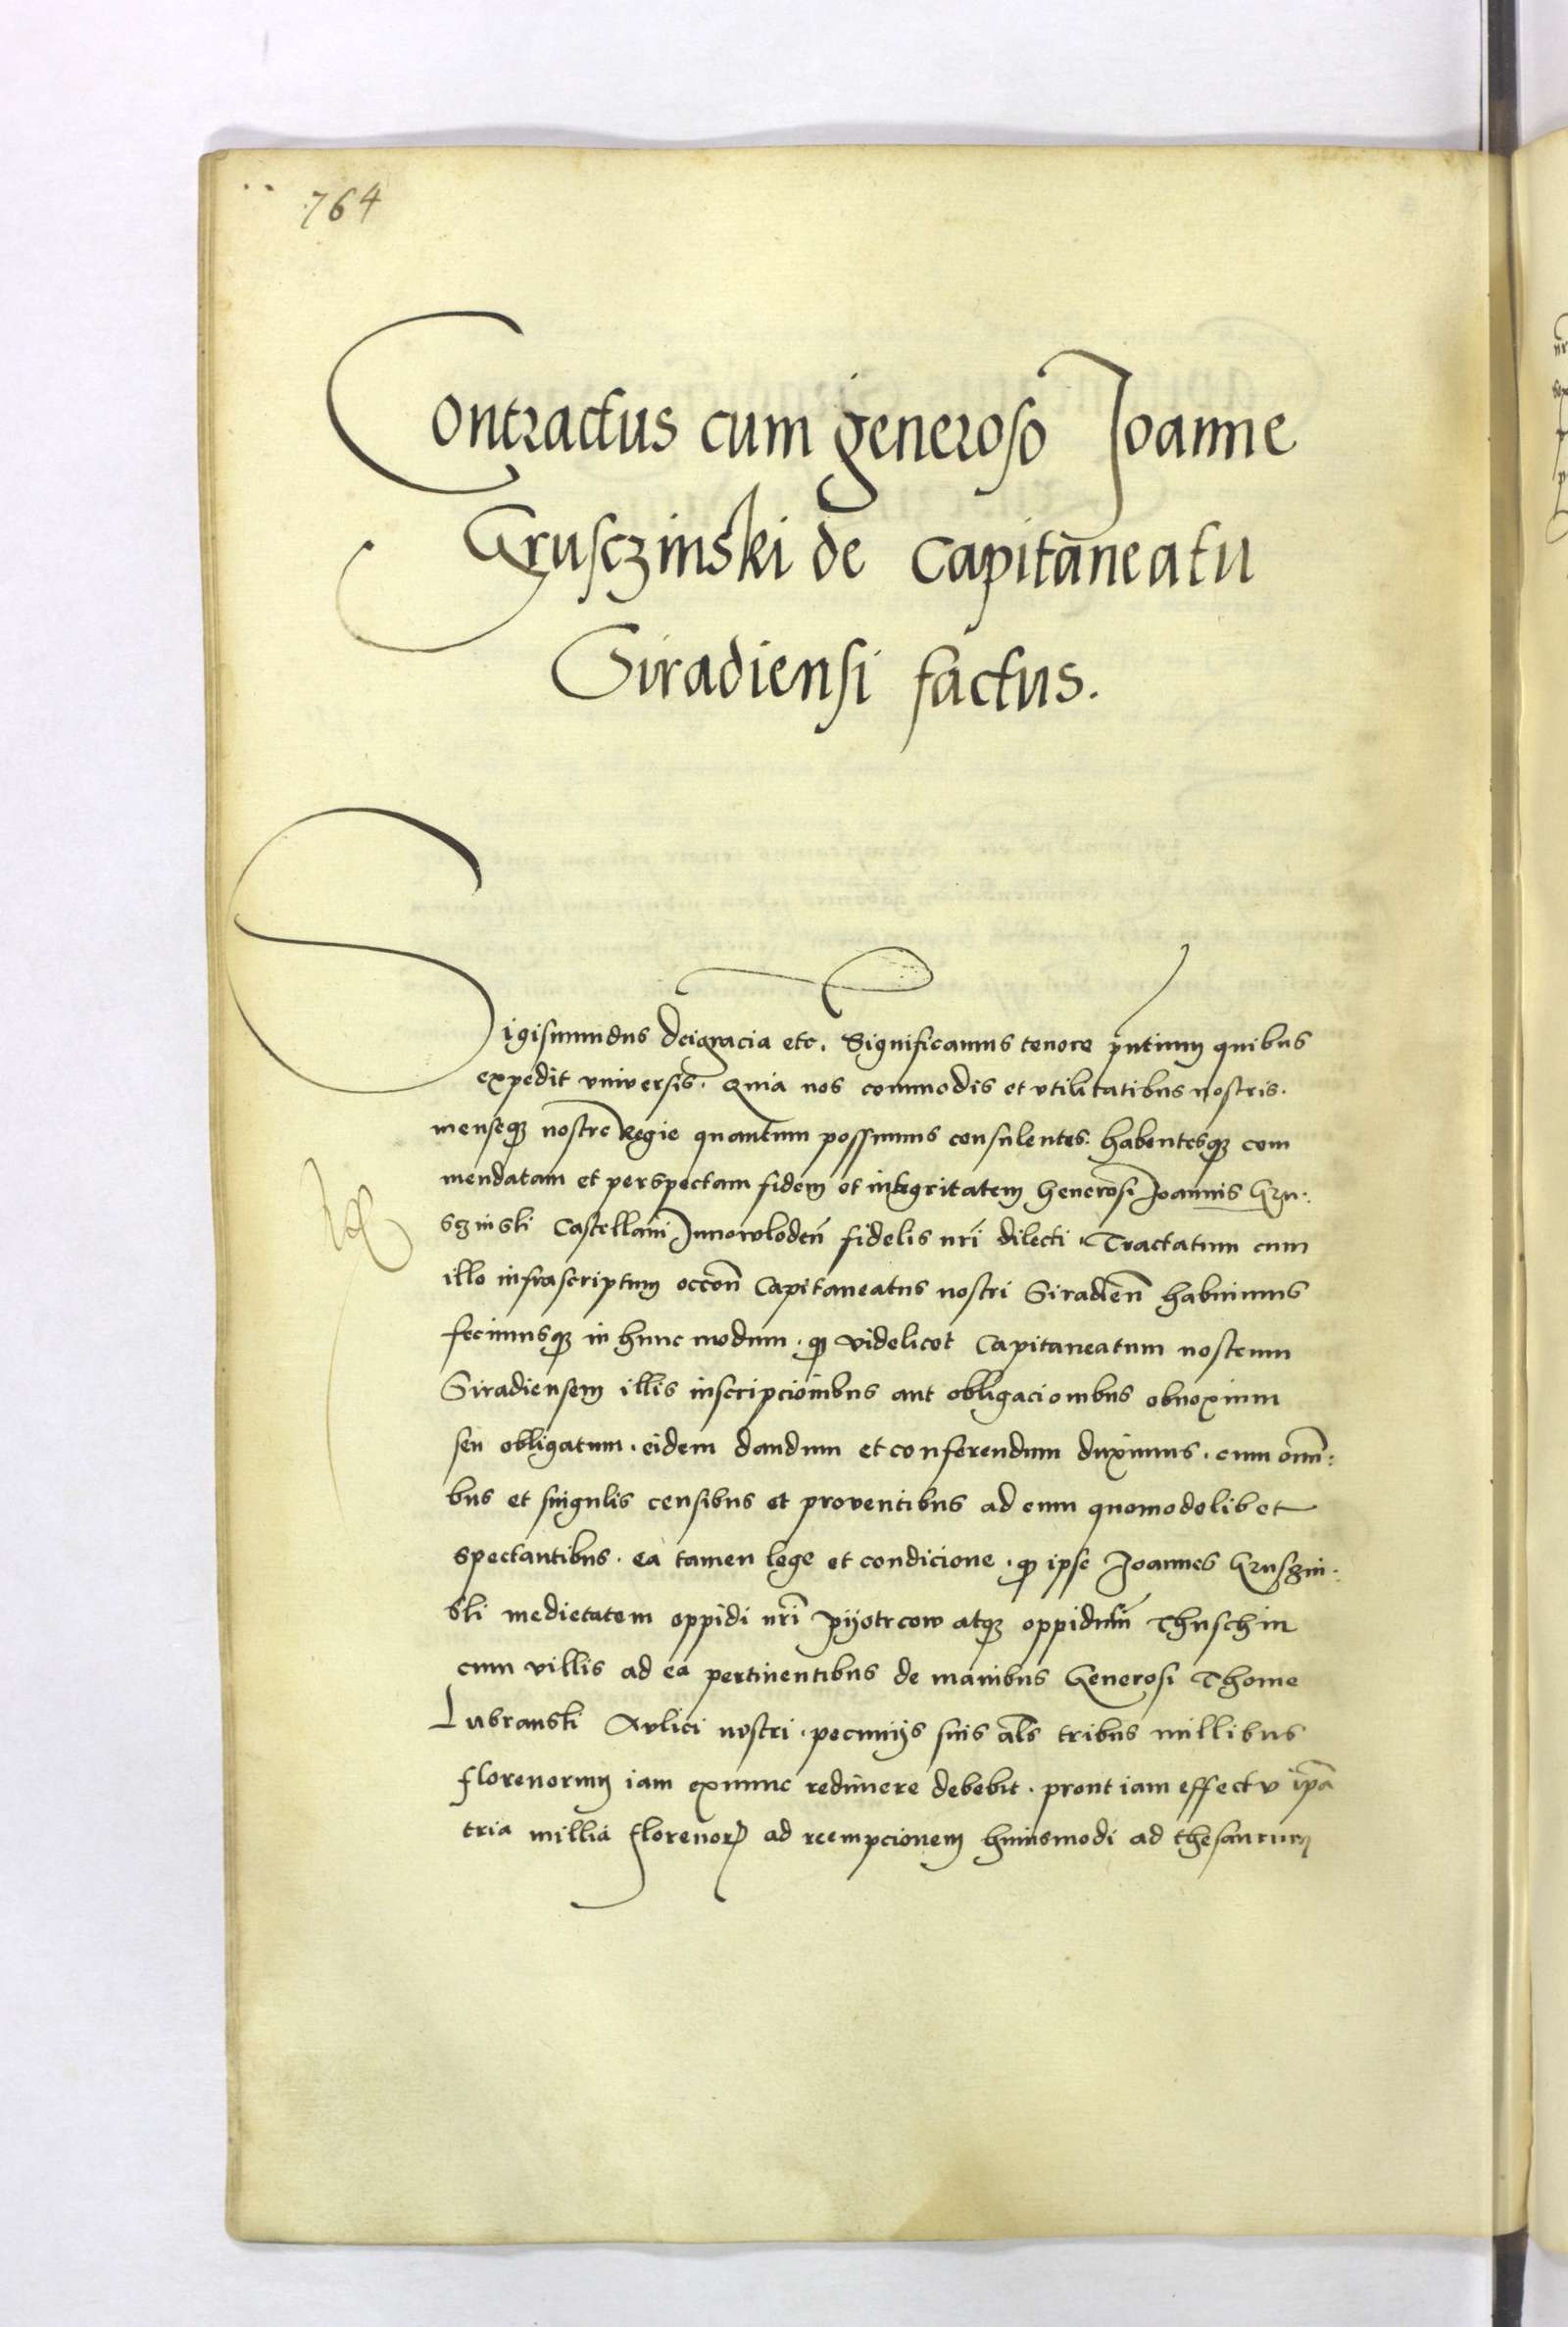 764
Contractus cum generoso Joanne
Grusczinski de Capitaneatu
Siradiensi factus.
Sigismundus dei gracia etc. Significamus tenore pñtium quibus
expedit vniversis. Quia nos commodis et vtilitatibus nostris.
menseq₃ nostre Regie quantum possumus consulentes. habentesq₃ com
mendatam et perspectam fidem et integritatem Generosi Joannis Gru:
sczinski Castellani Junowlodeñ fidelis nr̃i dilecti. Tractatum cum
illo infrascriptum occõñ Capitaneatus nostri Siradieñ habuimus
fecimusq₃ in hunc modum. q̨ videlicet Capitaneatum nostrum
Siradiensem illis inscripcionibus aut obligacionibus obnoxium
seu obligatum. eidem dandum et conferendum duximus. cum omñi:
bus et singulis censibus et proventibus ad eum quomodolibet
spectantibus. ea tamen lege et condicione. q̨ ipse Joannes Gruszin:
ski medietatem oppidi nr̃i Pyotrcow atq₃ oppidum̃ Thuschin
cum villis ad ea pertinentibus de manibus Generosi Thome
Lubranski Aulici nostri. pecuniis suis als̃ tribus millibus
florenorum iam exnunc redimere debebit. prout iam effectu ip̃a
tria millia florenorꝝ ad reempcionem huiusmodi ad thesaurum